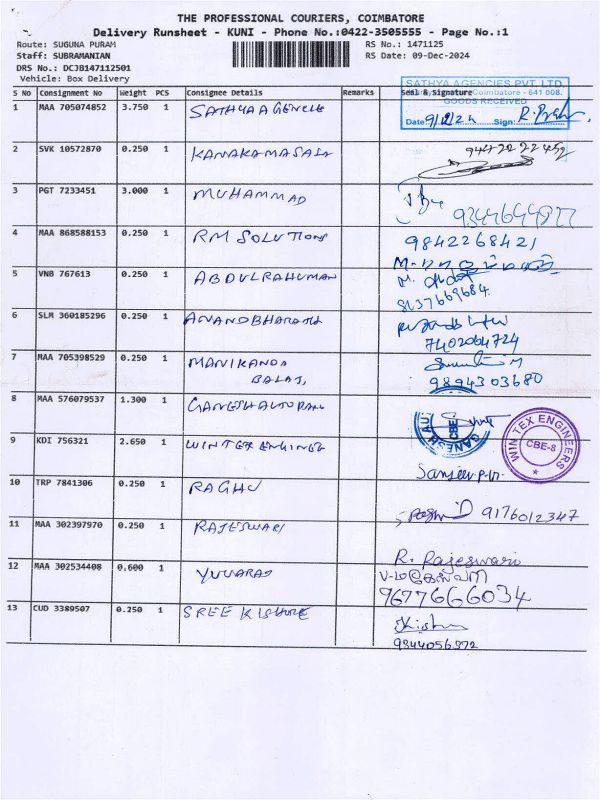 THE PROFESSIONAL COURIERS, COIMBATORE
Delivery Runsheet - KUNI - Phone No.:0422-3505555 - Page No.:1
Route: SUGUNA PURAM RS No.: 1471125
Staff: SUBRAMANIAN RS Date: 09-Dec-2024
DRS No.: DCJB147112501
Vehicle: Box Delivery
SATHYA AGENCIES PVT. LTD.
Coimbatore - 641 008.
S No Consignment No Weight PCS Consignee Details Remarks Seal & Signature
GOODS RECEIVED
1 MAA 705074852 3.750 1 SATHYA AGENCIE
Date: 9/12/24 Sign:
2 SVK 10572870 0.250 1 KANAKAMASALA
3 PGT 7233451 3.000 1 MUHAMMAD
4 MAA 868588153 0.250 1 RM SOLUTIONS 9842268421
5 VNB 767613 0.250 1 ABDULRAHUMAN
8137669684
6 SLM 360185296 0.250 1 ANANDBHARATH
7402064724
7 MAA 705398529 0.250 1 MANIKANDA
BALAJI 9894303680
8 MAA 576079537 1.300 1 GANESH AUTO PARU
GANESH AU CBE
WIN TEX ENGINEERS CBE-8
9 KDI 756321 2.650 1 WINTEX ENGINEE
Sanjeev.P.M.
10 TRP 7841306 0.250 1 RAGHU
9176012347
11 MAA 302397970 0.250 1 RAJESWARI
R. Rajeswari
12 MAA 302534408 0.600 1 YUVARAJ
9677666034
13 CUD 3389507 0.250 1 SREE KISHORE
Kishor
9344056972